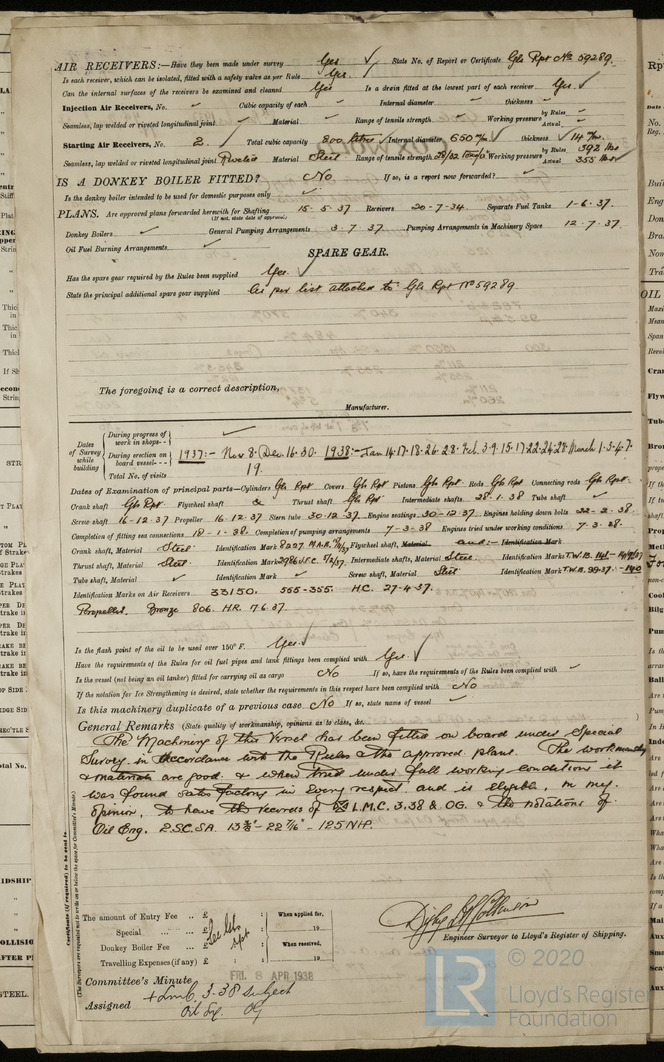 AIR RECEIVERS:—Have they been made under survey Yes ✓ State No. of Report or Certificate Gls Rpt No 59289.
Is each receiver, which can be isolated, fitted with a safety valve as per Rule Yes ✓
Can the internal surfaces of the receivers be examined and cleaned Yes Is a drain fitted at the lowest part of each receiver Yes ✓
Injection Air Receivers, No. ✓ Cubic capacity of each ✓ Internal diameter ✓ thickness ✓
Seamless, lap welded or riveted longitudinal joint ✓ Material ✓ Range of tensile strength ✓ Working pressure by Rules ✓ Actual ✓
Starting Air Receivers, No. 2 Total cubic capacity 800 litres ✓ Internal diameter 650 m/m ✓ thickness 14 m/m
Seamless, lap welded or riveted longitudinal joint Material Steel Range of tensile strength 28/32 Tons/□" Working pressure by Rules 392 lbs Actual 355 lbs
IS A DONKEY BOILER FITTED? No If so, is a report now forwarded? ✓
Is the donkey boiler intended to be used for domestic purposes only ✓
PLANS. Are approved plans forwarded herewith for Shafting 15.5.37 Receivers 20-7-34. Separate Fuel Tanks 1-6-37.
(If not, state date of approval)
Donkey Boilers ✓ General Pumping Arrangements 3.7.37. Pumping Arrangements in Machinery Space 12.7.37.
Oil Fuel Burning Arrangements ✓
SPARE GEAR.
Has the spare gear required by the Rules been supplied Yes ✓
State the principal additional spare gear supplied As per list attached to Gls Rpt No 59289.
The foregoing is a correct description,
Manufacturer.
Dates of Survey while building
During progress of work in shops-- ✓
During erection on board vessel--- 1937:- Nov 8. Dec. 16. 30. 1938:- Jan 14.17.18.26.28. Feb. 3.9.15.17.22.24.28. March 1.3.4.7.
Total No. of visits 19.
Dates of Examination of principal parts—Cylinders Gls Rpt Covers Gls Rpt Pistons Gls Rpt Rods Gls Rpt Connecting rods Gls Rpt.
Crank shaft Gls Rpt Flywheel shaft & Thrust shaft Gls Rpt Intermediate shafts 28.1.38 Tube shaft ✓
Screw shaft 16-12-37 Propeller 16.12.37 Stern tube 30-12-37 Engine seatings 30-12-37. Engines holding down bolts 22-2-38.
Completion of fitting sea connections 18-1-38. Completion of pumping arrangements 7-3-38 Engines tried under working conditions 7-3-38.
Crank shaft, Material Steel Identification Mark 8227 M.A.R. Flywheel shaft, Material and:- Identification Mark
Thrust shaft, Material Steel. Identification Mark Intermediate shafts, Material Steel Identification Marks T.W.B.
Tube shaft, Material ✓ Identification Mark ✓ Screw shaft, Material Steel Identification Mark T.W.B. 99.37.
Identification Marks on Air Receivers 33150. 565-355. HC. 27-4-37.
Propeller. Bronze 806. HR. 7.6.37.
Is the flash point of the oil to be used over 150° F. Yes ✓
Have the requirements of the Rules for oil fuel pipes and tank fittings been complied with Yes ✓
Is the vessel (not being an oil tanker) fitted for carrying oil as cargo No If so, have the requirements of the Rules been complied with ✓
If the notation for Ice Strengthening is desired, state whether the requirements in this respect have been complied with No
Is this machinery duplicate of a previous case No If so, state name of vessel ✓
General Remarks (State quality of workmanship, opinions as to class, &c.
The Machinery of this Vessel has been fitted on board under Special
Survey in accordance with the Rules & the approved plans. The workmanship
& materials are good. & when tried under full working conditions it
was found satisfactory in every respect, and is eligible, in my
opinion, to have the records of L.M.C. 3.38 & OG. & the notations of
Oil Eng. 2.SC.SA. 13 3/8" - 22 7/16" - 125 NHP.
Certificate (if required) to be sent to
(The Surveyors are requested not to write on or below the space for Committee's Minute.)
The amount of Entry Fee .. £ : :
Special ... .. £ : :
Donkey Boiler Fee ... £ : :
Travelling Expenses (if any) £ : :
See Gls rpt
When applied for,
19
When received,
19
Engineer Surveyor to Lloyd's Register of Shipping.
Committee's Minute FRI. 8 APR 1938
Assigned + Lmb. 3.38 subject
Oil Eng. OG
© 2020
LR
Lloyd's Register
Foundation